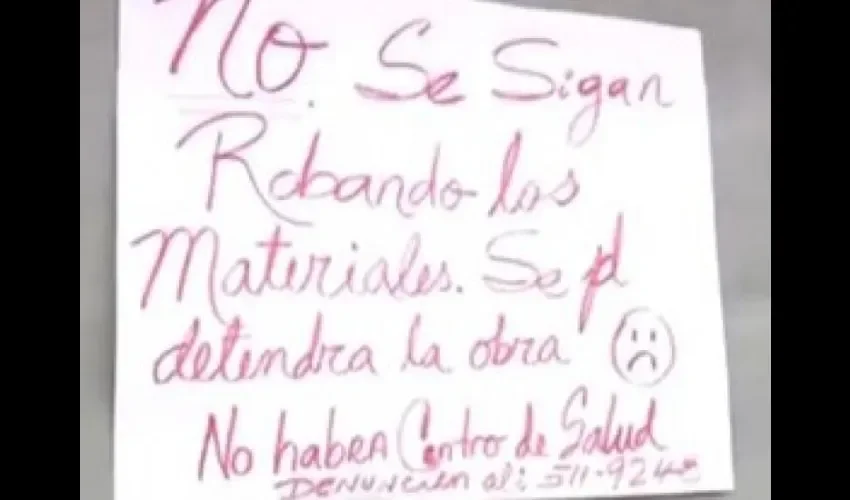 No. Se Sigan
Robando los
Materiales. Se
detendra la obra
No haben Centro de Salud
DENUNCIEN al: 511-924